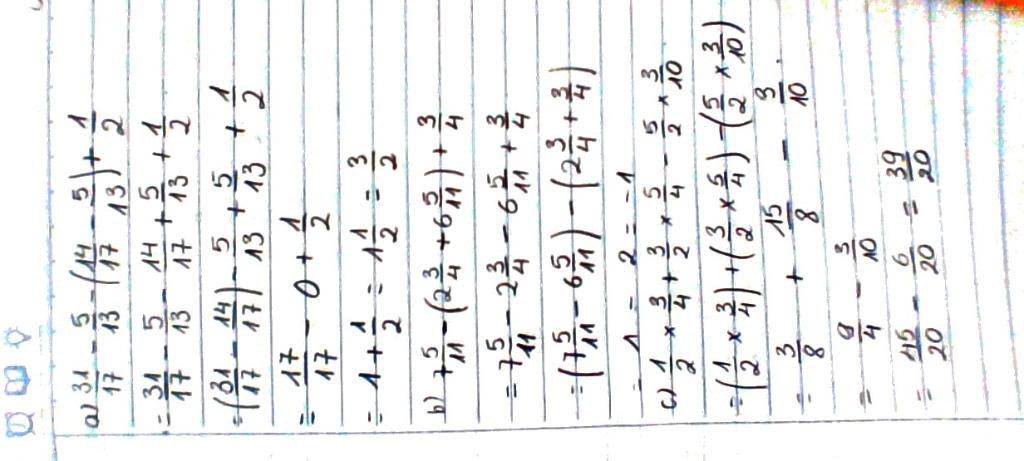 a) 31/17 - 5/13 - (14/17 - 5/13) + 1/2
= 31/17 - 5/13 - 14/17 + 5/13 + 1/2
= (31/17 - 14/17) - 5/13 + 5/13 + 1/2
= 17/17 - 0 + 1/2
= 1 + 1/2 = 1 1/2 = 3/2
b) 7 5/11 - (2 3/4 + 6 5/11) + 3/4
= 7 5/11 - 2 3/4 - 6 5/11 + 3/4
= (7 5/11 - 6 5/11) - (2 3/4 + 3/4)
= 1 - 2 = -1
c) 1/2 × 3/4 + 3/2 × 5/4 - 5/2 × 3/10
= (1/2 × 3/4) + (3/2 × 5/4) - (5/2 × 3/10)
= 3/8 + 15/8 - 3/10
= 9/4 - 3/10
= 45/20 - 6/20 = 39/20